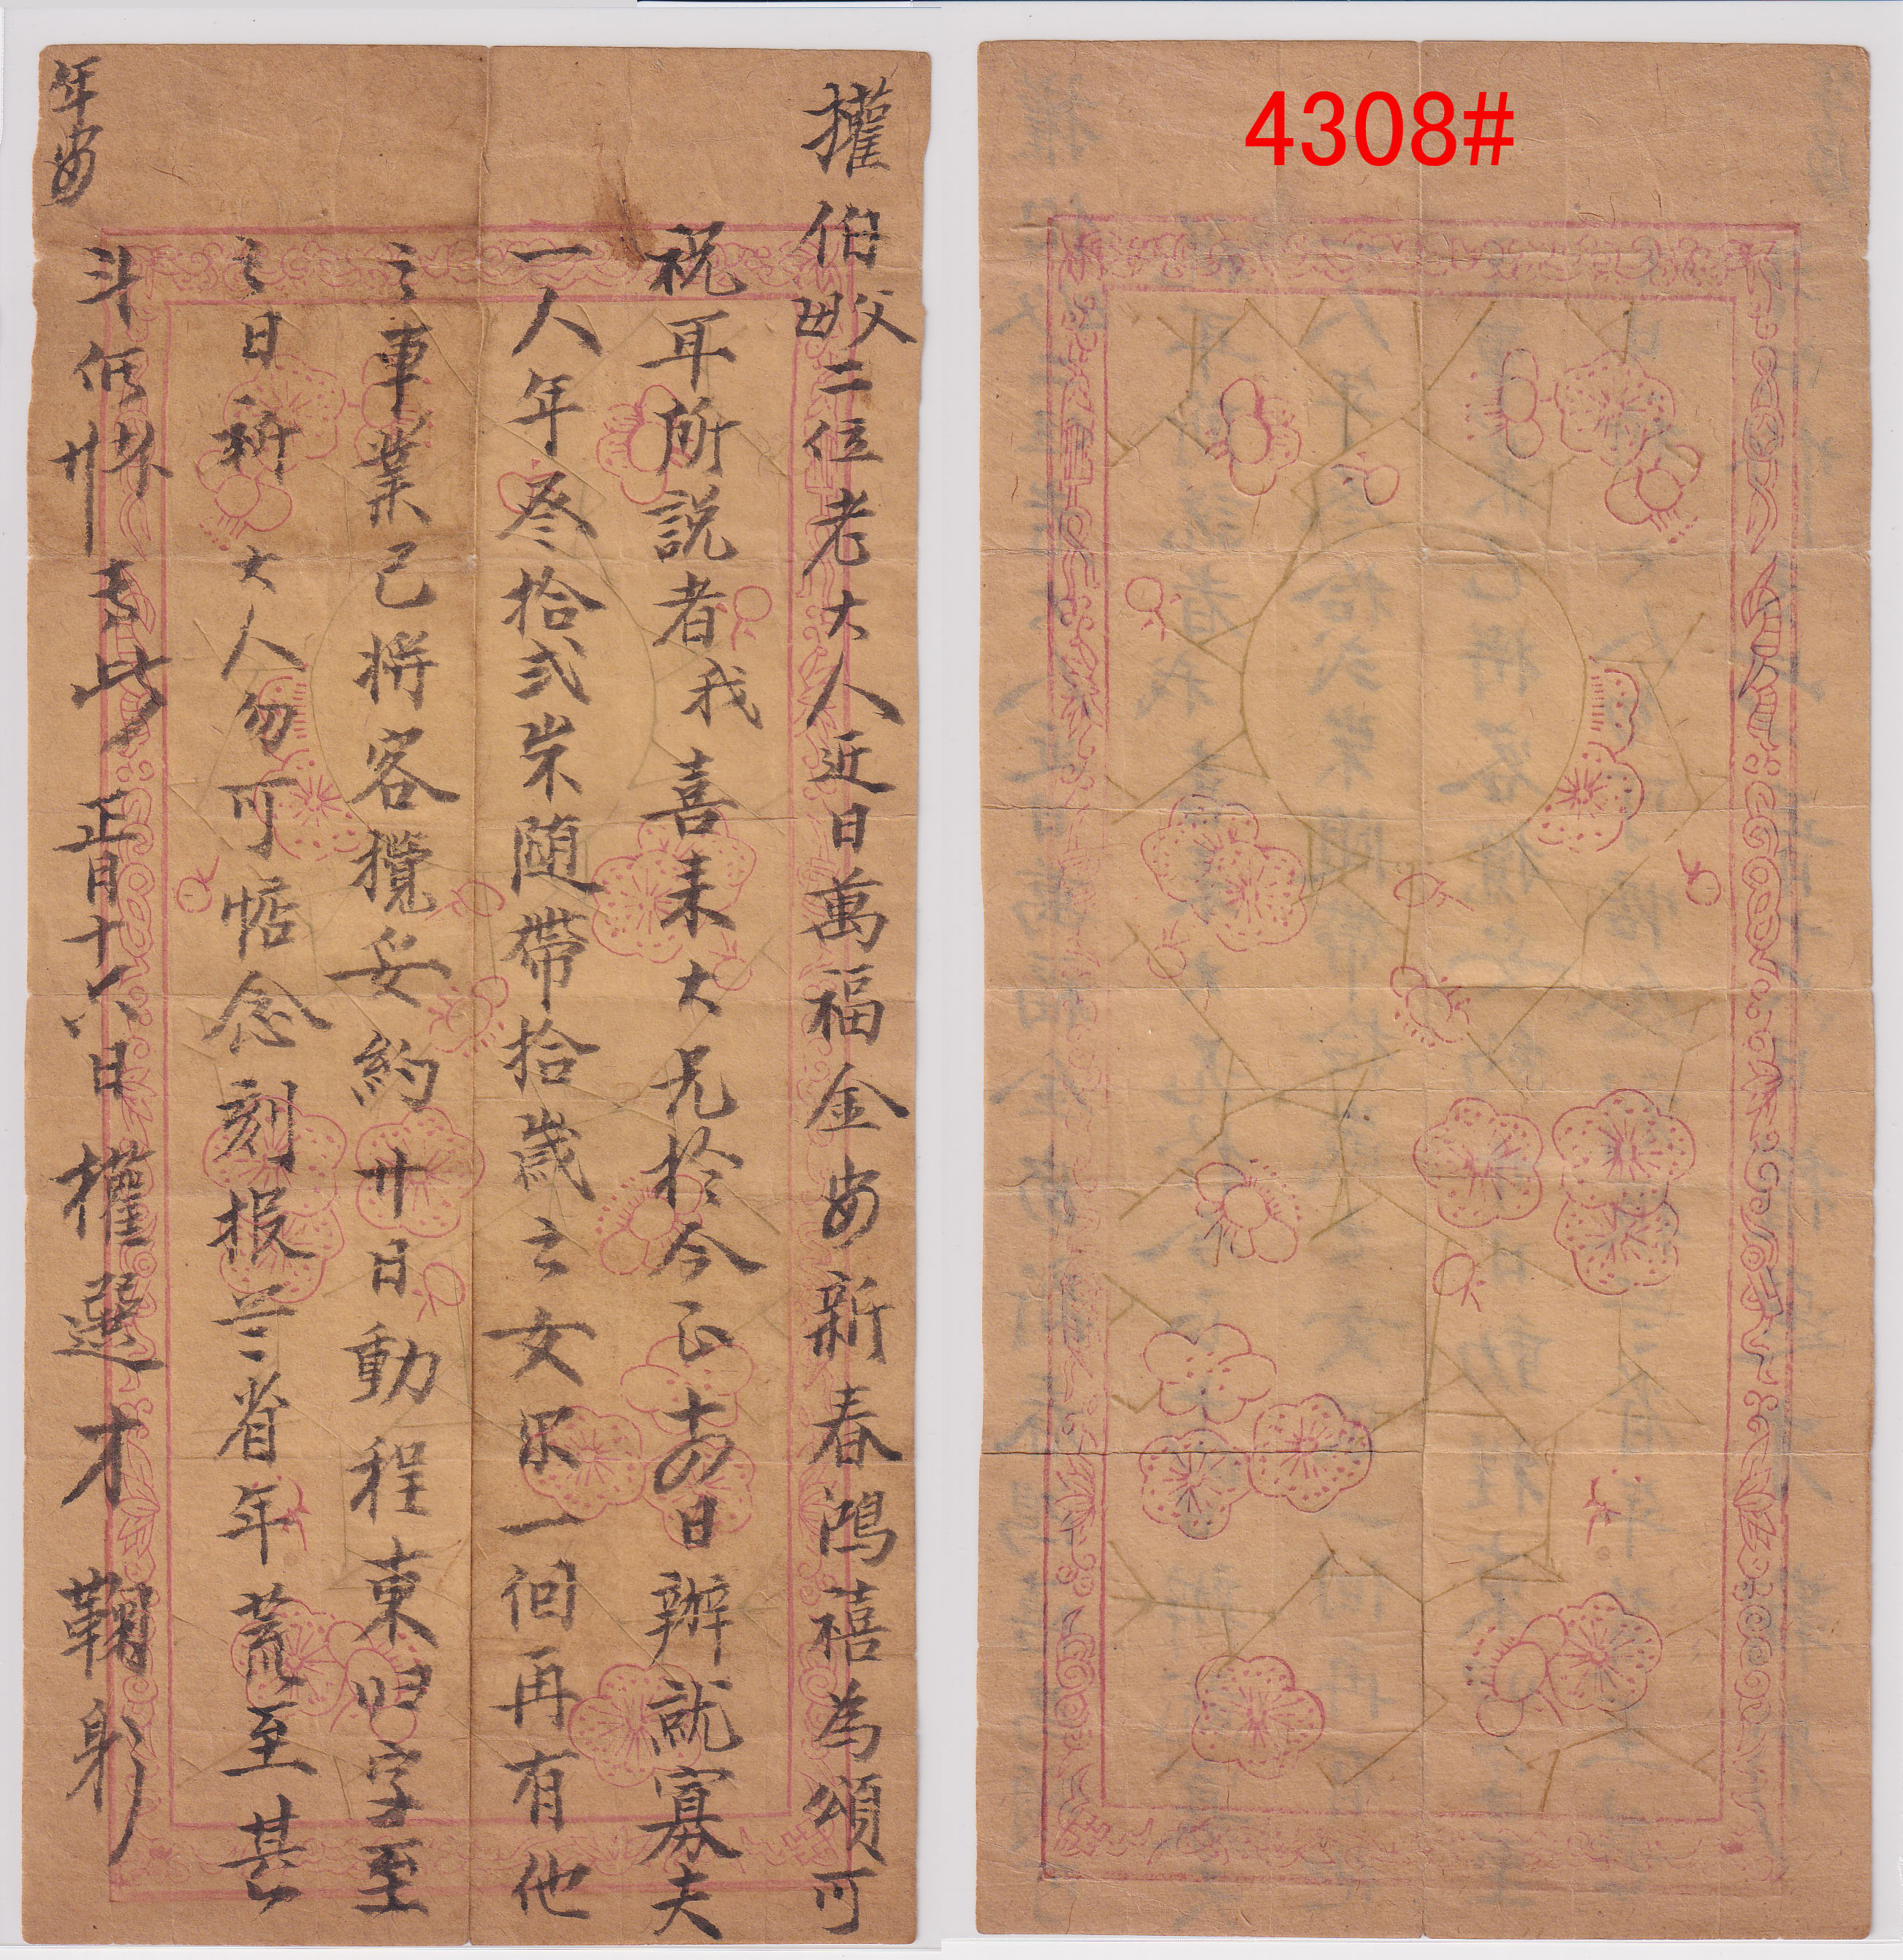 權伯父母二位老大人近日萬福金安新春鴻禧為頌可
祝耳所說者我喜來大兄於今正十四日辦就寡夫
一人年叁拾弍歲隨帶拾歲之女兒一個再有他
之事業已將客攬妥約廿日動程東歸字至
之日祈大人勿可惦念刻報三省年荒至甚
斗價 廿 吉此正月十六日權選才鞠躬
年安
4308#